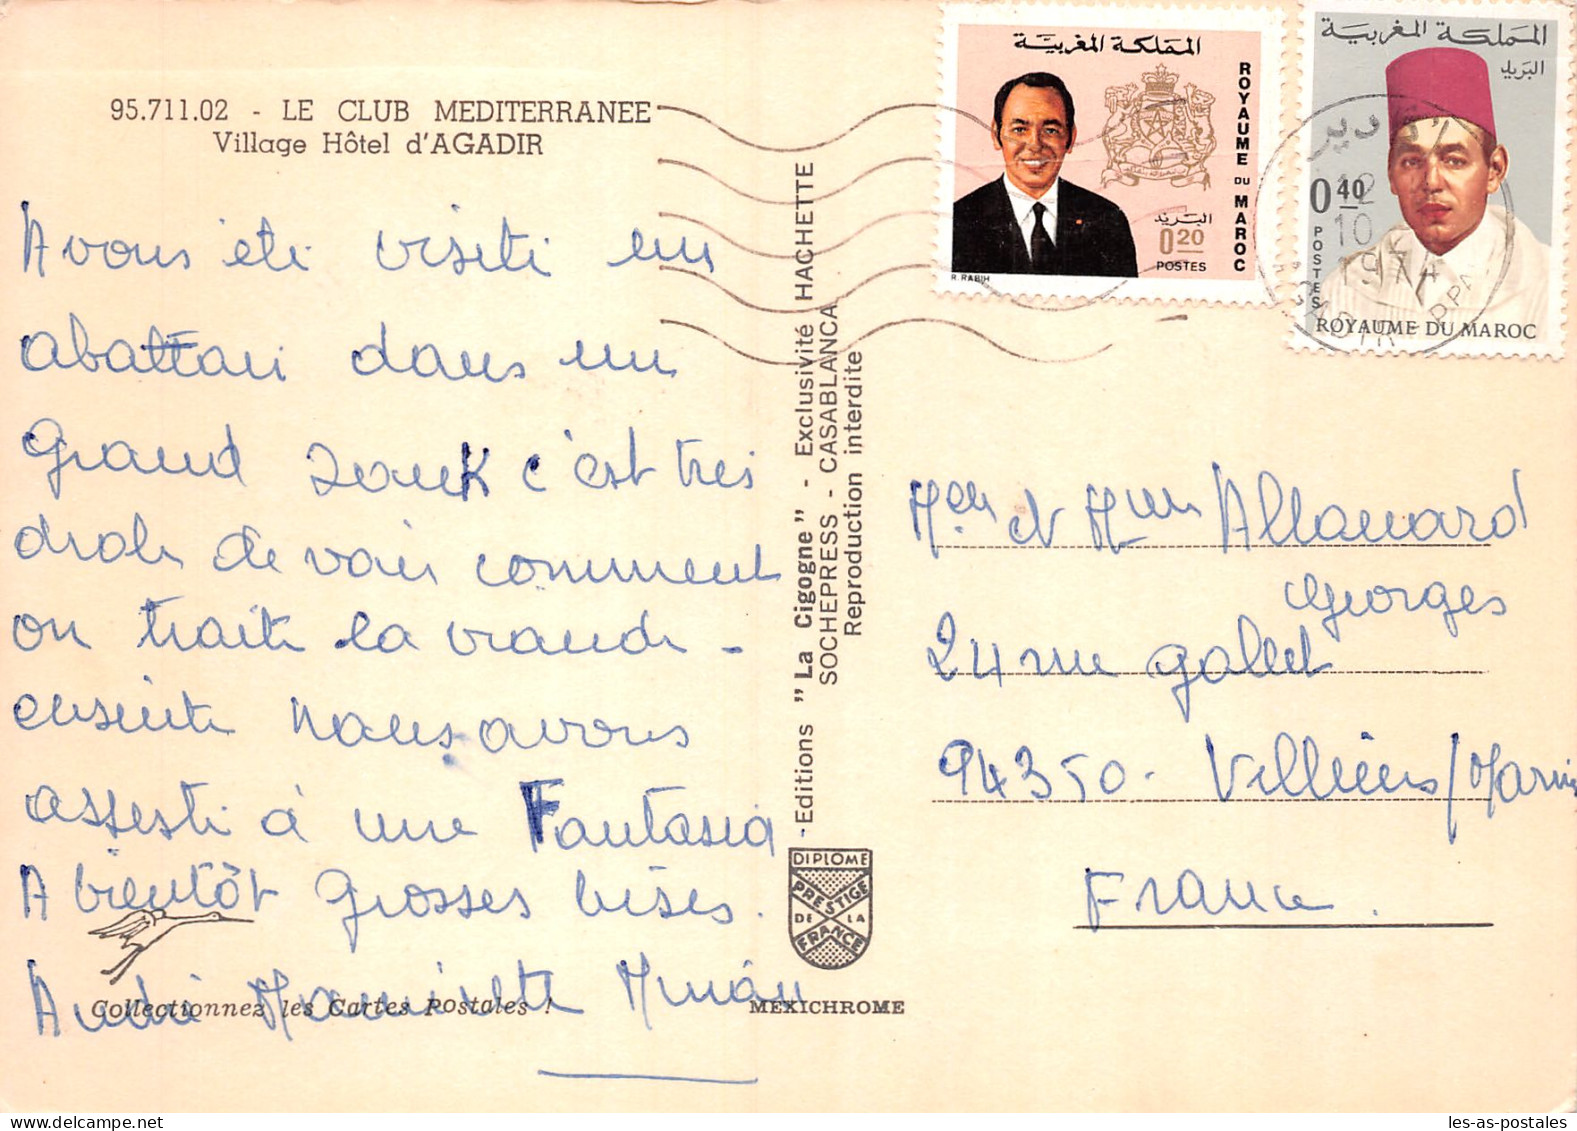 95.711.02 - LE CLUB MEDITERRANEE
Village Hôtel d'AGADIR
Avons été visité un
abattoir dans un
grand souk c'est très
drole de voir comment
on traite la viande -
ensuite nous avons
assisté à une Fantasia
A bientôt grosses bises.
André Mauricette
Collectionnez les Cartes Postales !
MEXICHROME
-Editions "La Cigogne" - Exclusivité HACHETTE
SOCHEPRESS - CASABLANCA
Reproduction interdite
DIPLOME
PRESTIGE
DE LA
FRANCE
المملكة المغربية
ROYAUME DU MAROC
البريد
0.20
POSTES
R. RABIH
المملكة المغربية
البريد
0.40
POSTES
ROYAUME DU MAROC
12
10
1974
AGADIR
Allouard
Georges
24 rue gallet
94350 - Villiers/Marne
France.
les-as-postales